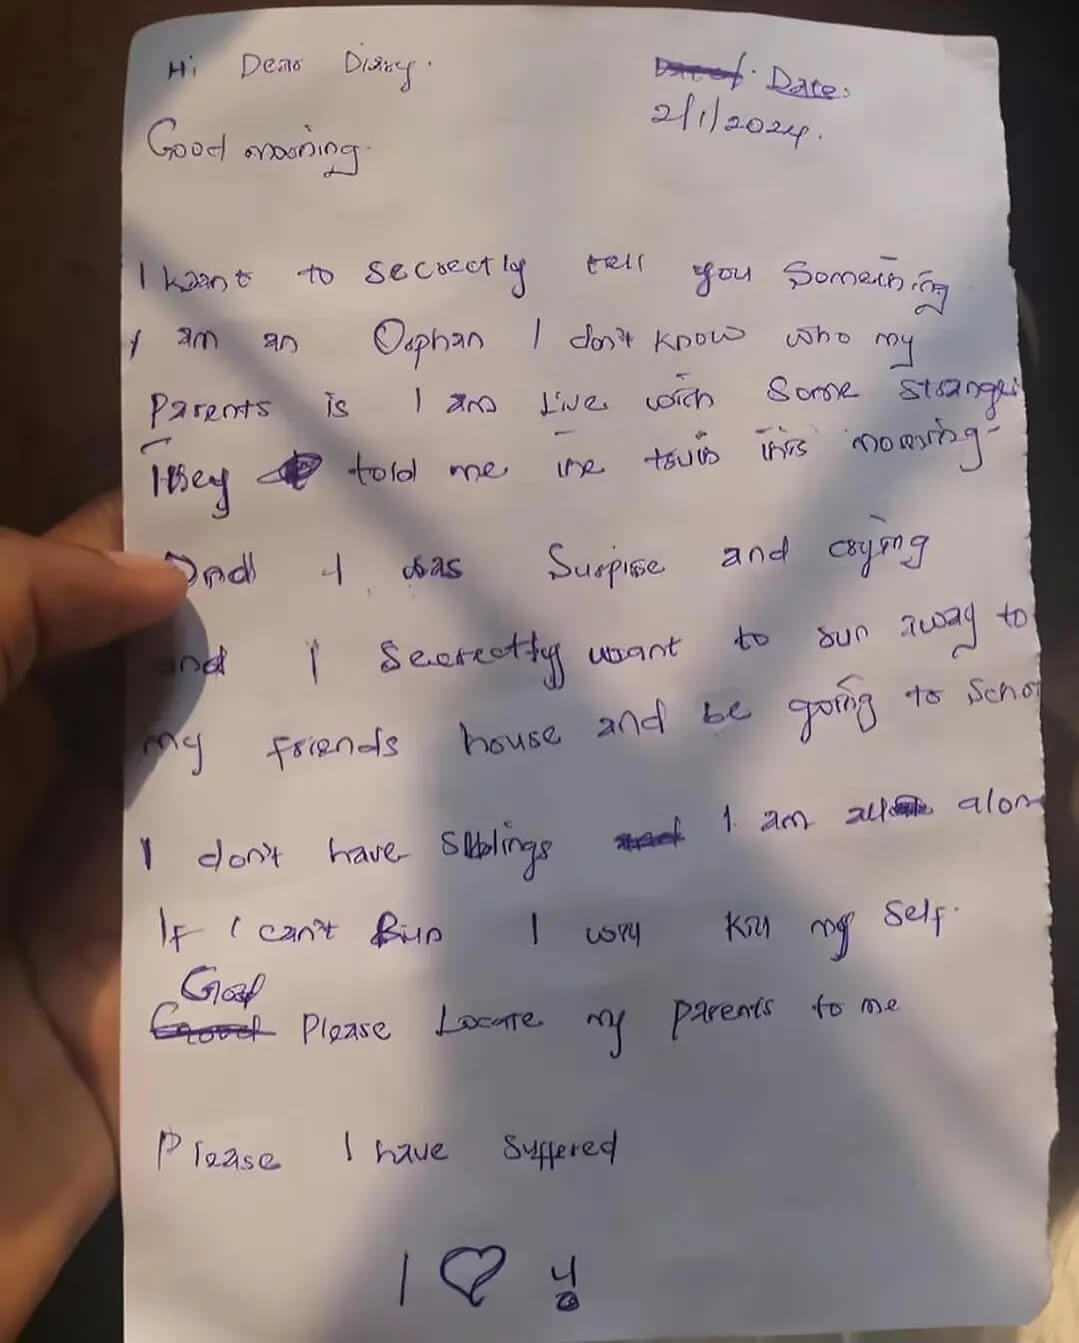 Hi Dear Diary.
Date:
2/1/2024.
Good morning.
I want to secrectly tell you Something
I am an Orphan I don't know who my
Parents is I am Live with Some strange
They told me the truth this morning
And I was Surpise and crying
and I Secrectly want to run away to
my friends house and be going to Scho
I don't have Siblings I am all alon
If I can't Run I will Kill my Self.
God
Please Locate my parents to me
Please I have Suffered
I ♡ y